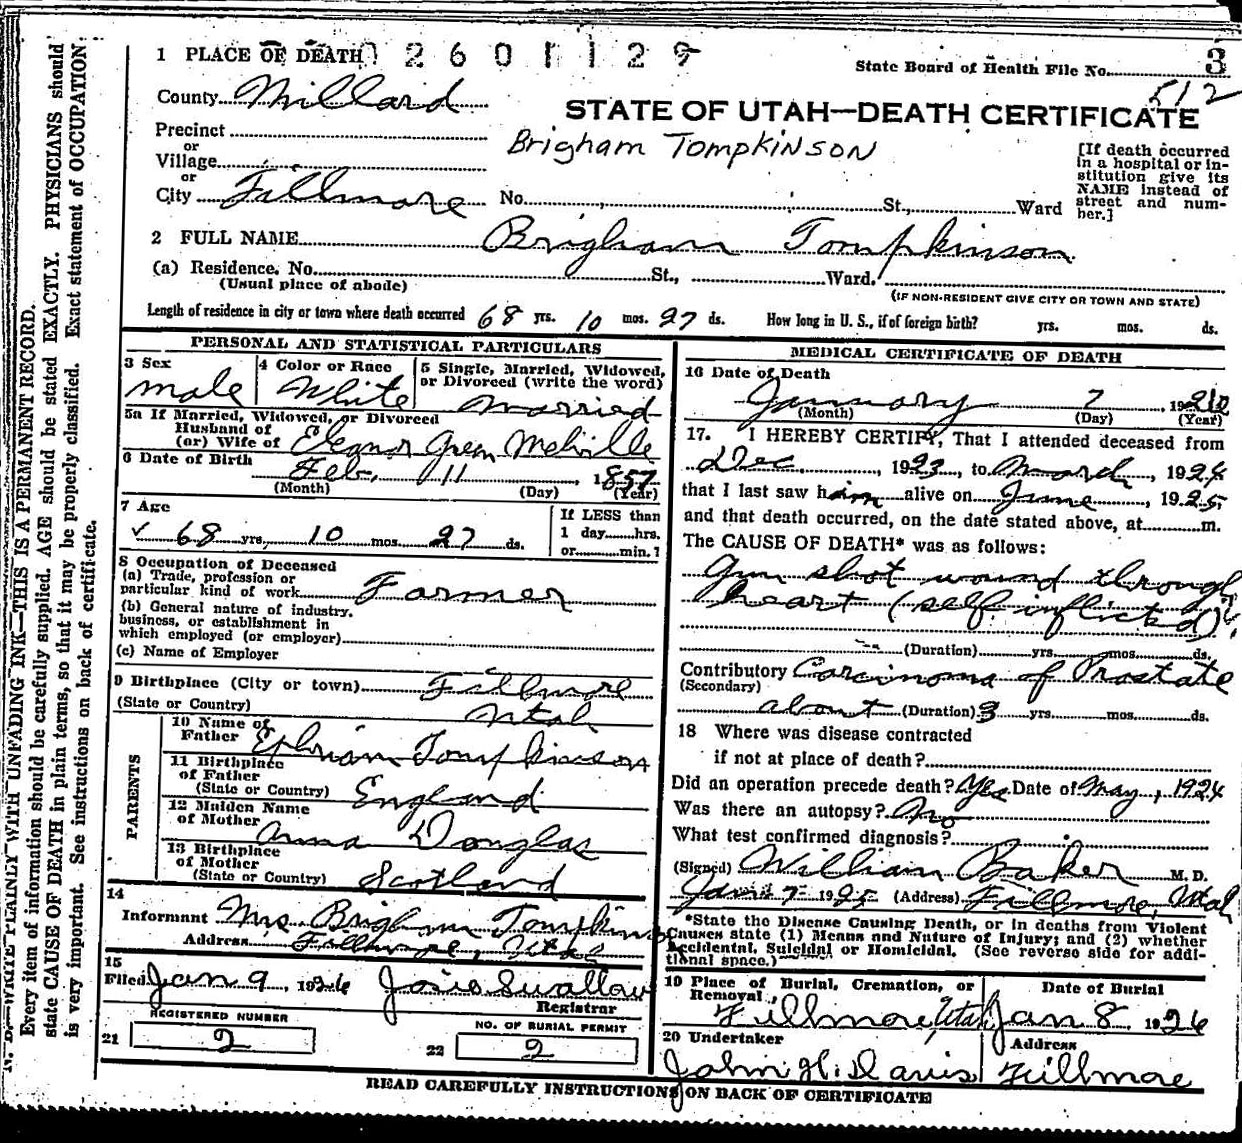 1 PLACE OF DEATH 2 6 0 1 1 2 9
State Board of Health File No. 3
512
County Millard
STATE OF UTAH—DEATH CERTIFICATE
Precinct
Brigham Tompkinson
or
Village
or
City Fillmore No. St., Ward
[If death occurred
in a hospital or in-
stitution give its
NAME instead of
street and num-
ber.]
2 FULL NAME Brigham Tompkinson
(a) Residence. No. St., Ward.
(Usual place of abode)
(IF NON-RESIDENT GIVE CITY OR TOWN AND STATE)
Length of residence in city or town where death occurred 68 yrs. 10 mos. 27 ds. How long in U. S., if of foreign birth? yrs. mos. ds.
PERSONAL AND STATISTICAL PARTICULARS
3 Sex
male
4 Color or Race
White
5 Single, Married, Widowed,
or Divorced (write the word)
Married
5a If Married, Widowed, or Divorced
Husband of
(or) Wife of Eleanor Green Melville
6 Date of Birth
Feb. 11, 1857
(Month) (Day) (Year)
7 Age
✓ 68 yrs. 10 mos. 27 ds.
If LESS than
1 day hrs.
or min.?
8 Occupation of Deceased
(a) Trade, profession or
particular kind of work Farmer
(b) General nature of industry,
business, or establishment in
which employed (or employer)
(c) Name of Employer
9 Birthplace (City or town) Fillmore
(State or Country) Utah
PARENTS
10 Name of
Father Ephriam Tompkinson
11 Birthplace
of Father
(State or Country) England
12 Maiden Name
of Mother
Anna Douglas
13 Birthplace
of Mother
(State or Country) Scotland
14
Informant Mrs Brigham Tompkinson
Address Fillmore, Utah
15
Filed Jan 9, 1926 Josie Swallow
Registrar
REGISTERED NUMBER
21 2
NO. OF BURIAL PERMIT
22 2
MEDICAL CERTIFICATE OF DEATH
16 Date of Death
January 7, 19
(Month) (Day) (Year)
17. I HEREBY CERTIFY, That I attended deceased from
Dec., 1923, to March, 1924
that I last saw him alive on June, 1925,
and that death occurred, on the date stated above, at m.
The CAUSE OF DEATH* was as follows:
Gun shot wound through
heart (self inflicted)
(Duration) yrs. mos. ds.
Contributory Carcinoma of Prostate
(Secondary)
about (Duration) 3 yrs. mos. ds.
18 Where was disease contracted
if not at place of death?
Did an operation precede death? Yes Date of May, 1924
Was there an autopsy? No
What test confirmed diagnosis?
(Signed) William Baker M. D.
Jan 7 1925 (Address) Fillmore, Utah
*State the Disease Causing Death, or in deaths from Violent
Causes state (1) Means and Nature of Injury; and (2) whether
Accidental, Suicidal or Homicidal. (See reverse side for addi-
tional space.)
19 Place of Burial, Cremation, or
Removal,
Fillmore, Utah
Date of Burial
Jan 8, 1926
20 Undertaker
John H. Davis
Address
Fillmore
READ CAREFULLY INSTRUCTIONS ON BACK OF CERTIFICATE
N. B.—WRITE PLAINLY WITH UNFADING INK—THIS IS A PERMANENT RECORD.
Every item of information should be carefully supplied. AGE should be stated EXACTLY. PHYSICIANS should
state CAUSE OF DEATH in plain terms, so that it may be properly classified. Exact statement of OCCUPATION
is very important. See instructions on back of certificate.